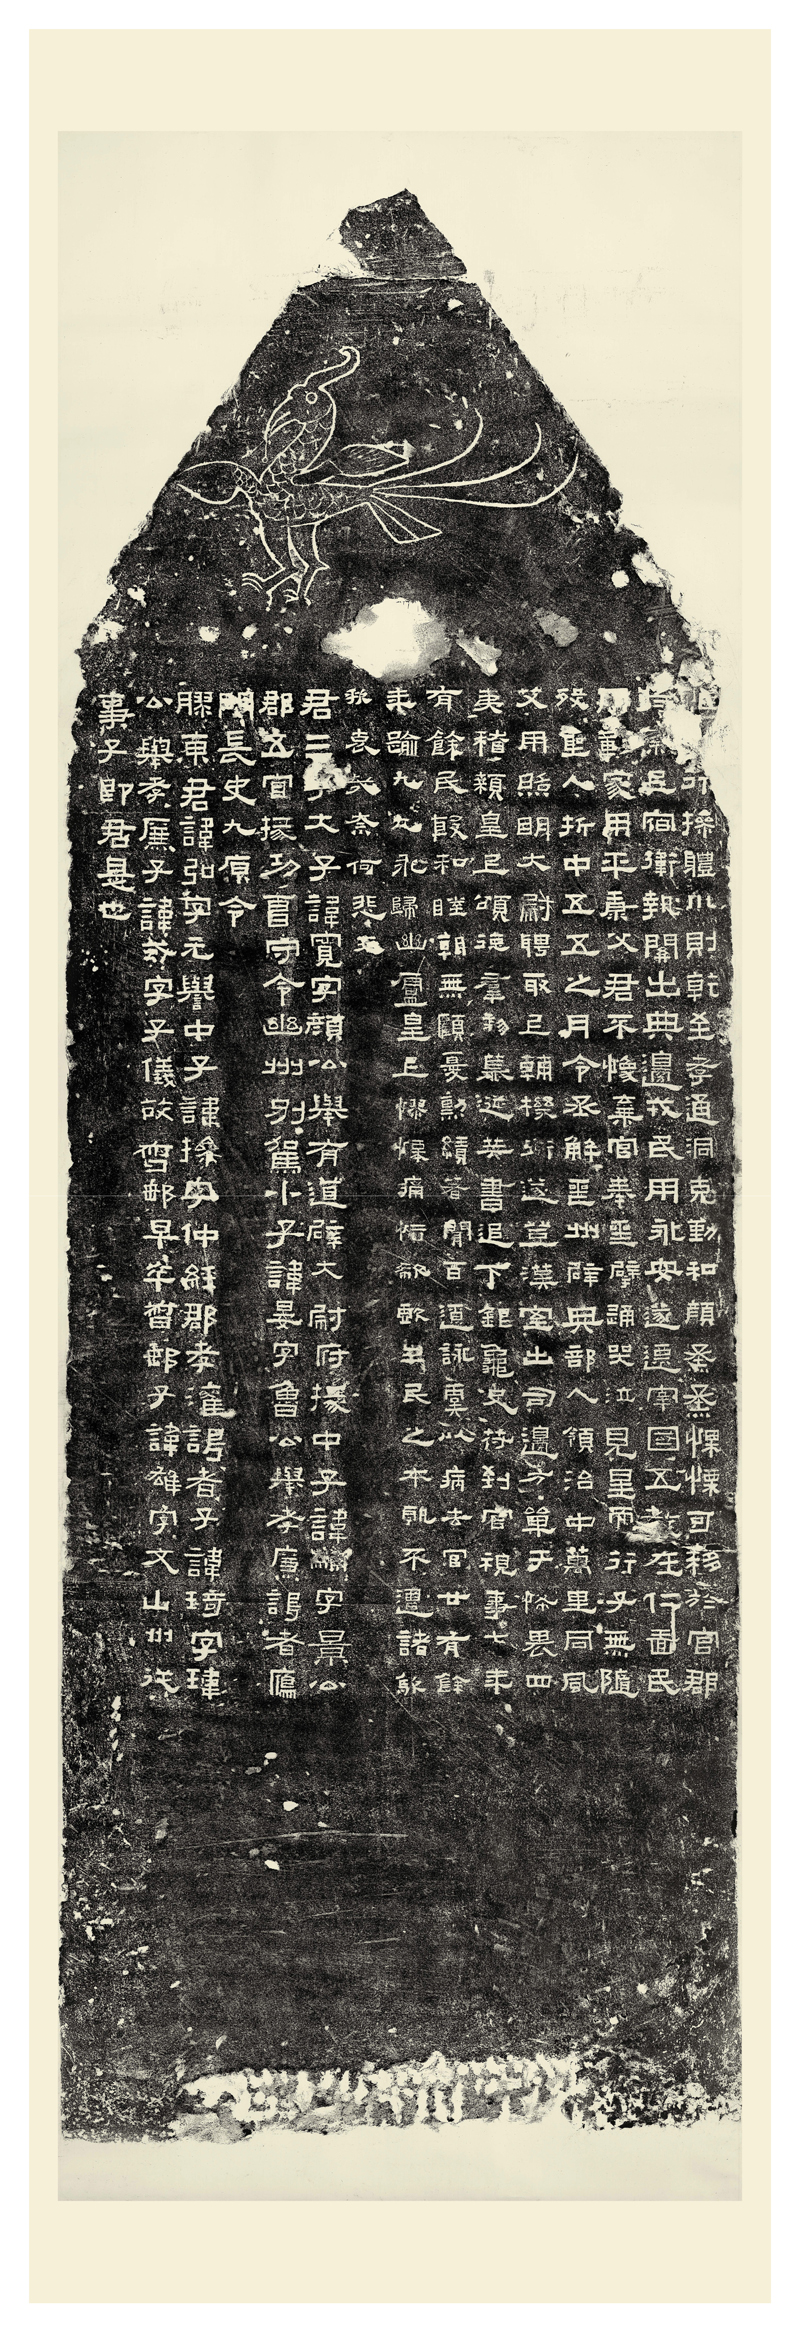 可操體仁則乾至孝通洞克勤和顏烝烝慄慄可移於官郡
足宿衛執開出典邊戎民用永安遂遷宰國五教在仁嗇民
家用平康父君不像棄官奉喪辟踊哭泣見星而行子無隨
歿聖人折中五五之月令丞解喪州辟典部入領治中萬里同風
艾用照明大尉聘取上輔機衡遂登漢室出司邊方單于怖畏四
夷稽顙皇上頌德群黎慕涎策書追下銀龜史符到官視事七年
有餘民殷和睦朝無顧憂勳績著聞百遼詠虞以病去官廿有餘
年踰九九永歸幽廬皇上憀慄痛惜欷歔生民之本孰不遭諸
哀哉奈何悲夫
君三子大子諱寬字顏公舉有道辟大尉府掾中子諱黼字景公
郡五官掾功曹守令幽州別駕小子諱晏字魯公舉孝廉謁者鴈
門長史九原令
膠東君諱弘字元譽中子諱操字仲經郡孝灌謁者子諱琦字瑋
公舉孝廉子諱芬字子儀故督郵早卒督郵子諱雄字文山州從
事子即君是也